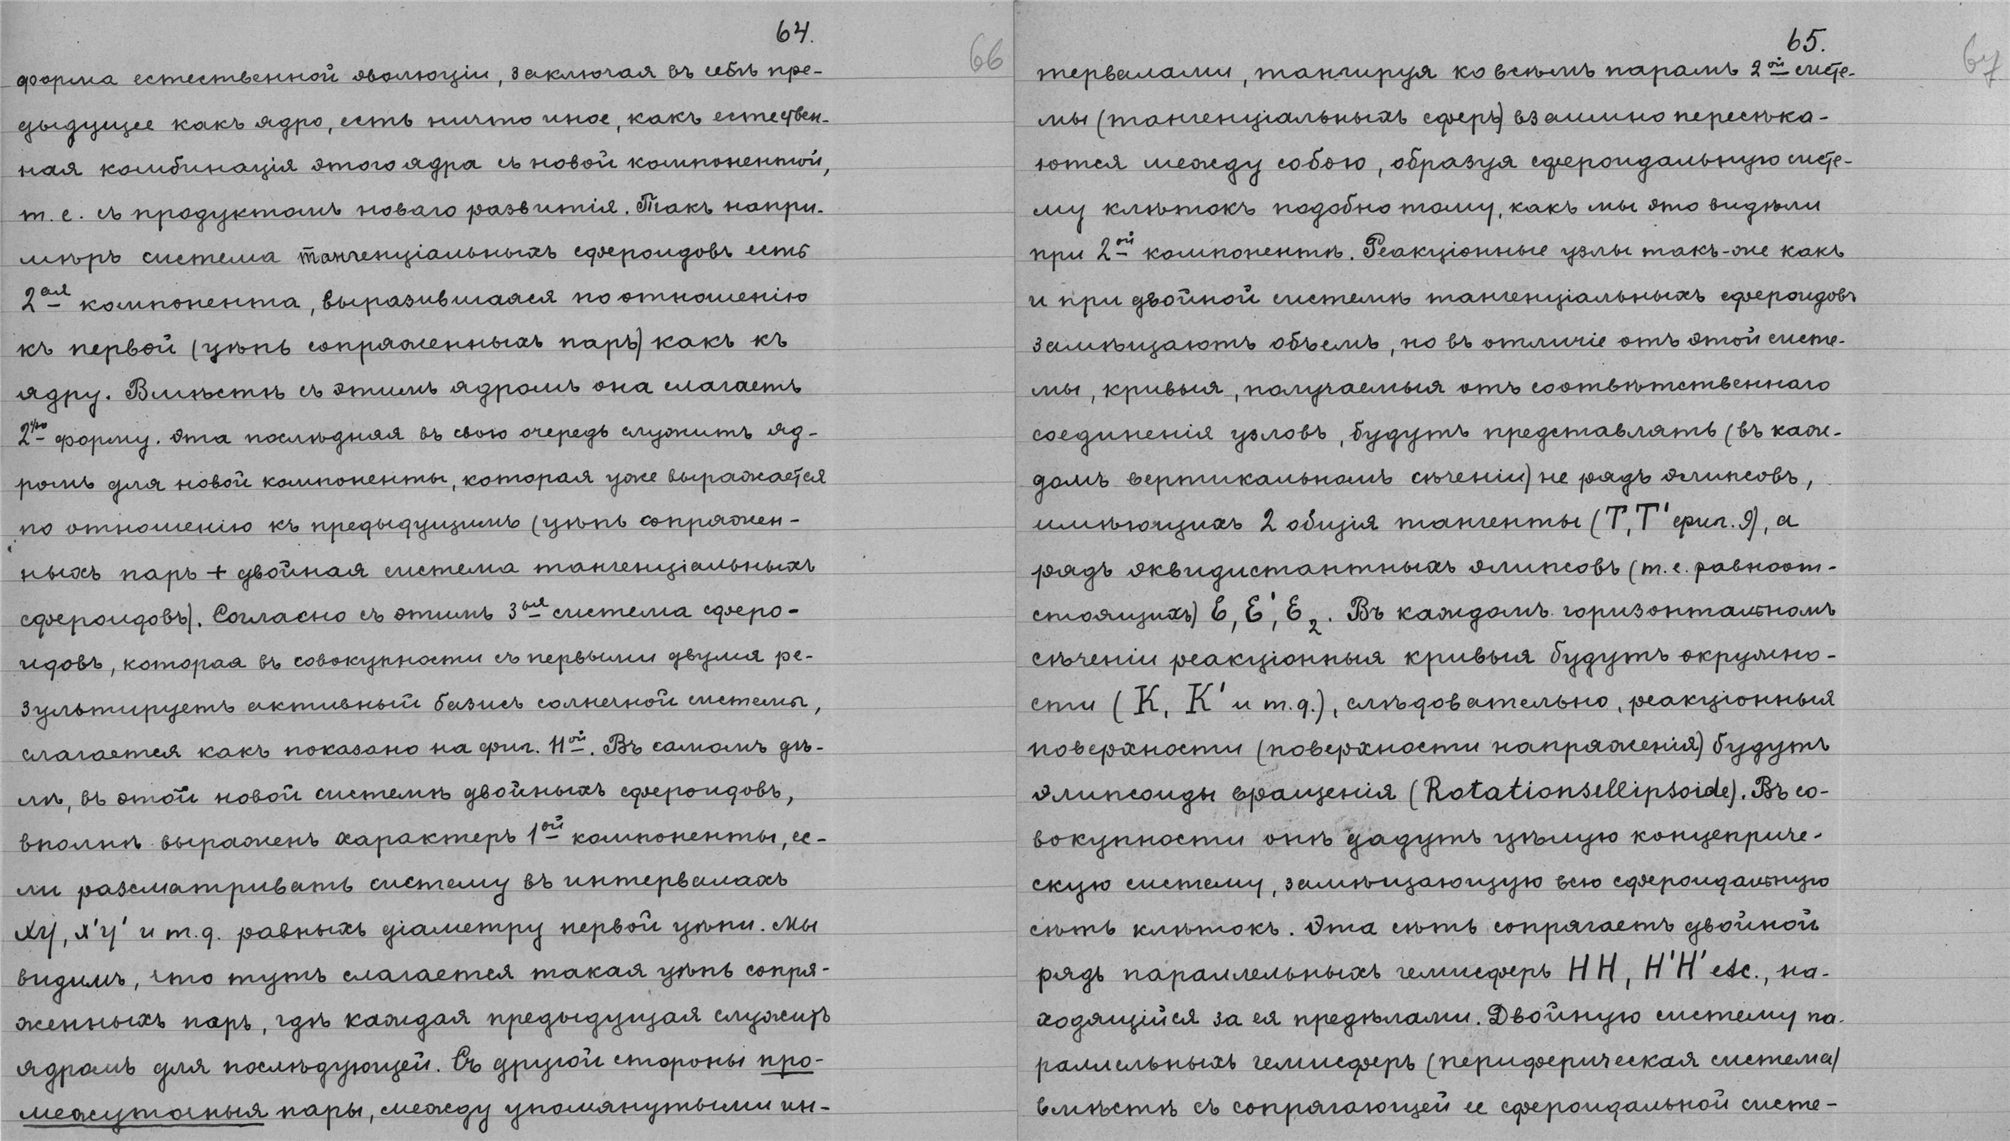 64.
66
форма естественной эволюціи, заключая въ себѣ пре-
дыдущее какъ ядро, есть ничто иное, какъ естествен-
ная комбинація этого ядра съ новой компонентой,
т. е. съ продуктомъ новаго развитія. Такъ напри-
мѣръ система тангенціальныхъ сфероидовъ есть
2ая компонента, выразившаяся по отношенію
къ первой (цѣпь сопряженныхъ паръ) какъ къ
ядру. Вмѣстѣ съ этимъ ядромъ она слагаетъ
2ую форму. Эта послѣдняя въ свою очередь служитъ яд-
ромъ для новой компоненты, которая уже выражается
по отношенію къ предыдущимъ (цѣпь сопряжен-
ныхъ паръ + двойная система тангенціальныхъ
сфероидовъ). Согласно съ этимъ 3ая система сферо-
идовъ, которая въ совокупности съ первыми двумя ре-
зультируетъ активный базисъ солнечной системы,
слагается какъ показано на фиг. 11ой. Въ самомъ дѣ-
лѣ, въ этой новой системѣ двойныхъ сфероидовъ,
вполнѣ выраженъ характеръ 1ой компоненты, ес-
ли разсматривать систему въ интервалахъ
xy, x'y' и т. д. равныхъ діаметру первой цѣпи. Мы
видимъ, что тутъ слагается такая цѣпь сопря-
женныхъ паръ, гдѣ каждая предыдущая служитъ
ядромъ для послѣдующей. Съ другой стороны про-
межуточныя пары, между упомянутыми ин-
65.
67
тервалами, тангируя ко всѣмъ парамъ 2ой систе-
мы (тангенціальныхъ сферъ) взаимно пересѣка-
ются между собою, образуя сфероидальную систе-
му клѣтокъ подобно тому, какъ мы это видѣли
при 2ой компонентѣ. Реакціонные узлы такъ-же какъ
и при двойной системѣ тангенціальныхъ сфероидовъ
замѣщаютъ объемъ, но въ отличіе отъ этой систе-
мы, кривыя, получаемыя отъ соотвѣтственнаго
соединенія узловъ, будутъ представлять (въ каж-
домъ вертикальномъ сѣченіи) не рядъ элипсовъ,
имѣющихъ 2 общія тангенты (T, T' фиг. 9), а
рядъ эквидистантныхъ элипсовъ (т. е. равноот-
стоящихъ) E, E', E2. Въ каждомъ горизонтальномъ
сѣченіи реакціонныя кривыя будутъ окружно-
сти (K, K' и т. д.), слѣдовательно, реакціонныя
поверхности (поверхности напряженія) будутъ
элипсоиды вращенія (Rotationsellipsoide). Въ со-
вокупности онѣ дадутъ цѣлую концентриче-
скую систему, замѣщающую всю сфероидальную
сѣть клѣтокъ. Эта сѣть сопрягаетъ двойной
рядъ параллельныхъ гемисферъ HH, H'H' etc., на-
ходящійся за ея предѣлами. Двойную систему па-
раллельныхъ гемисферъ (периферическая система)
вмѣстѣ съ сопрягающей ее сфероидальной систе-